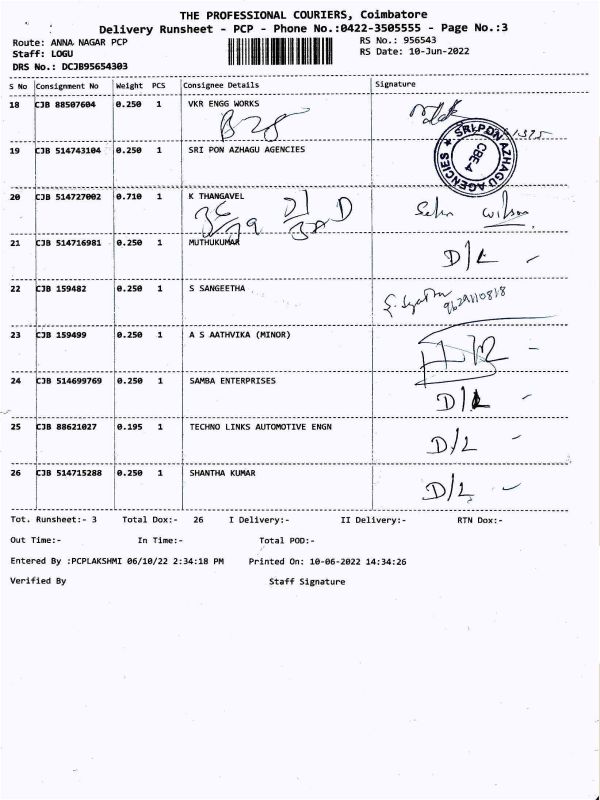 THE PROFESSIONAL COURIERS, Coimbatore
Delivery Runsheet - PCP - Phone No.:0422-3505555 - Page No.:3
Route: ANNA NAGAR PCP RS No.: 956543
Staff: LOGU RS Date: 10-Jun-2022
DRS No.: DCJB95654303
S No Consignment No Weight PCS Consignee Details Signature
18 CJB 88507604 0.250 1 VKR ENGG WORKS
19 CJB 514743104 0.250 1 SRI PON AZHAGU AGENCIES
SRI PON AZHAGU AGENCIES ★ CBE-4
20 CJB 514727002 0.710 1 K THANGAVEL
21 CJB 514716981 0.250 1 MUTHUKUMAR D/L -
22 CJB 159482 0.250 1 S SANGEETHA 9629110818
23 CJB 159499 0.250 1 A S AATHVIKA (MINOR)
24 CJB 514699769 0.250 1 SAMBA ENTERPRISES D/L
25 CJB 88621027 0.195 1 TECHNO LINKS AUTOMOTIVE ENGN D/L
26 CJB 514715288 0.250 1 SHANTHA KUMAR D/L
Tot. Runsheet:- 3 Total Dox:- 26 I Delivery:- II Delivery:- RTN Dox:-
Out Time:- In Time:- Total POD:-
Entered By :PCPLAKSHMI 06/10/22 2:34:18 PM Printed On: 10-06-2022 14:34:26
Verified By Staff Signature